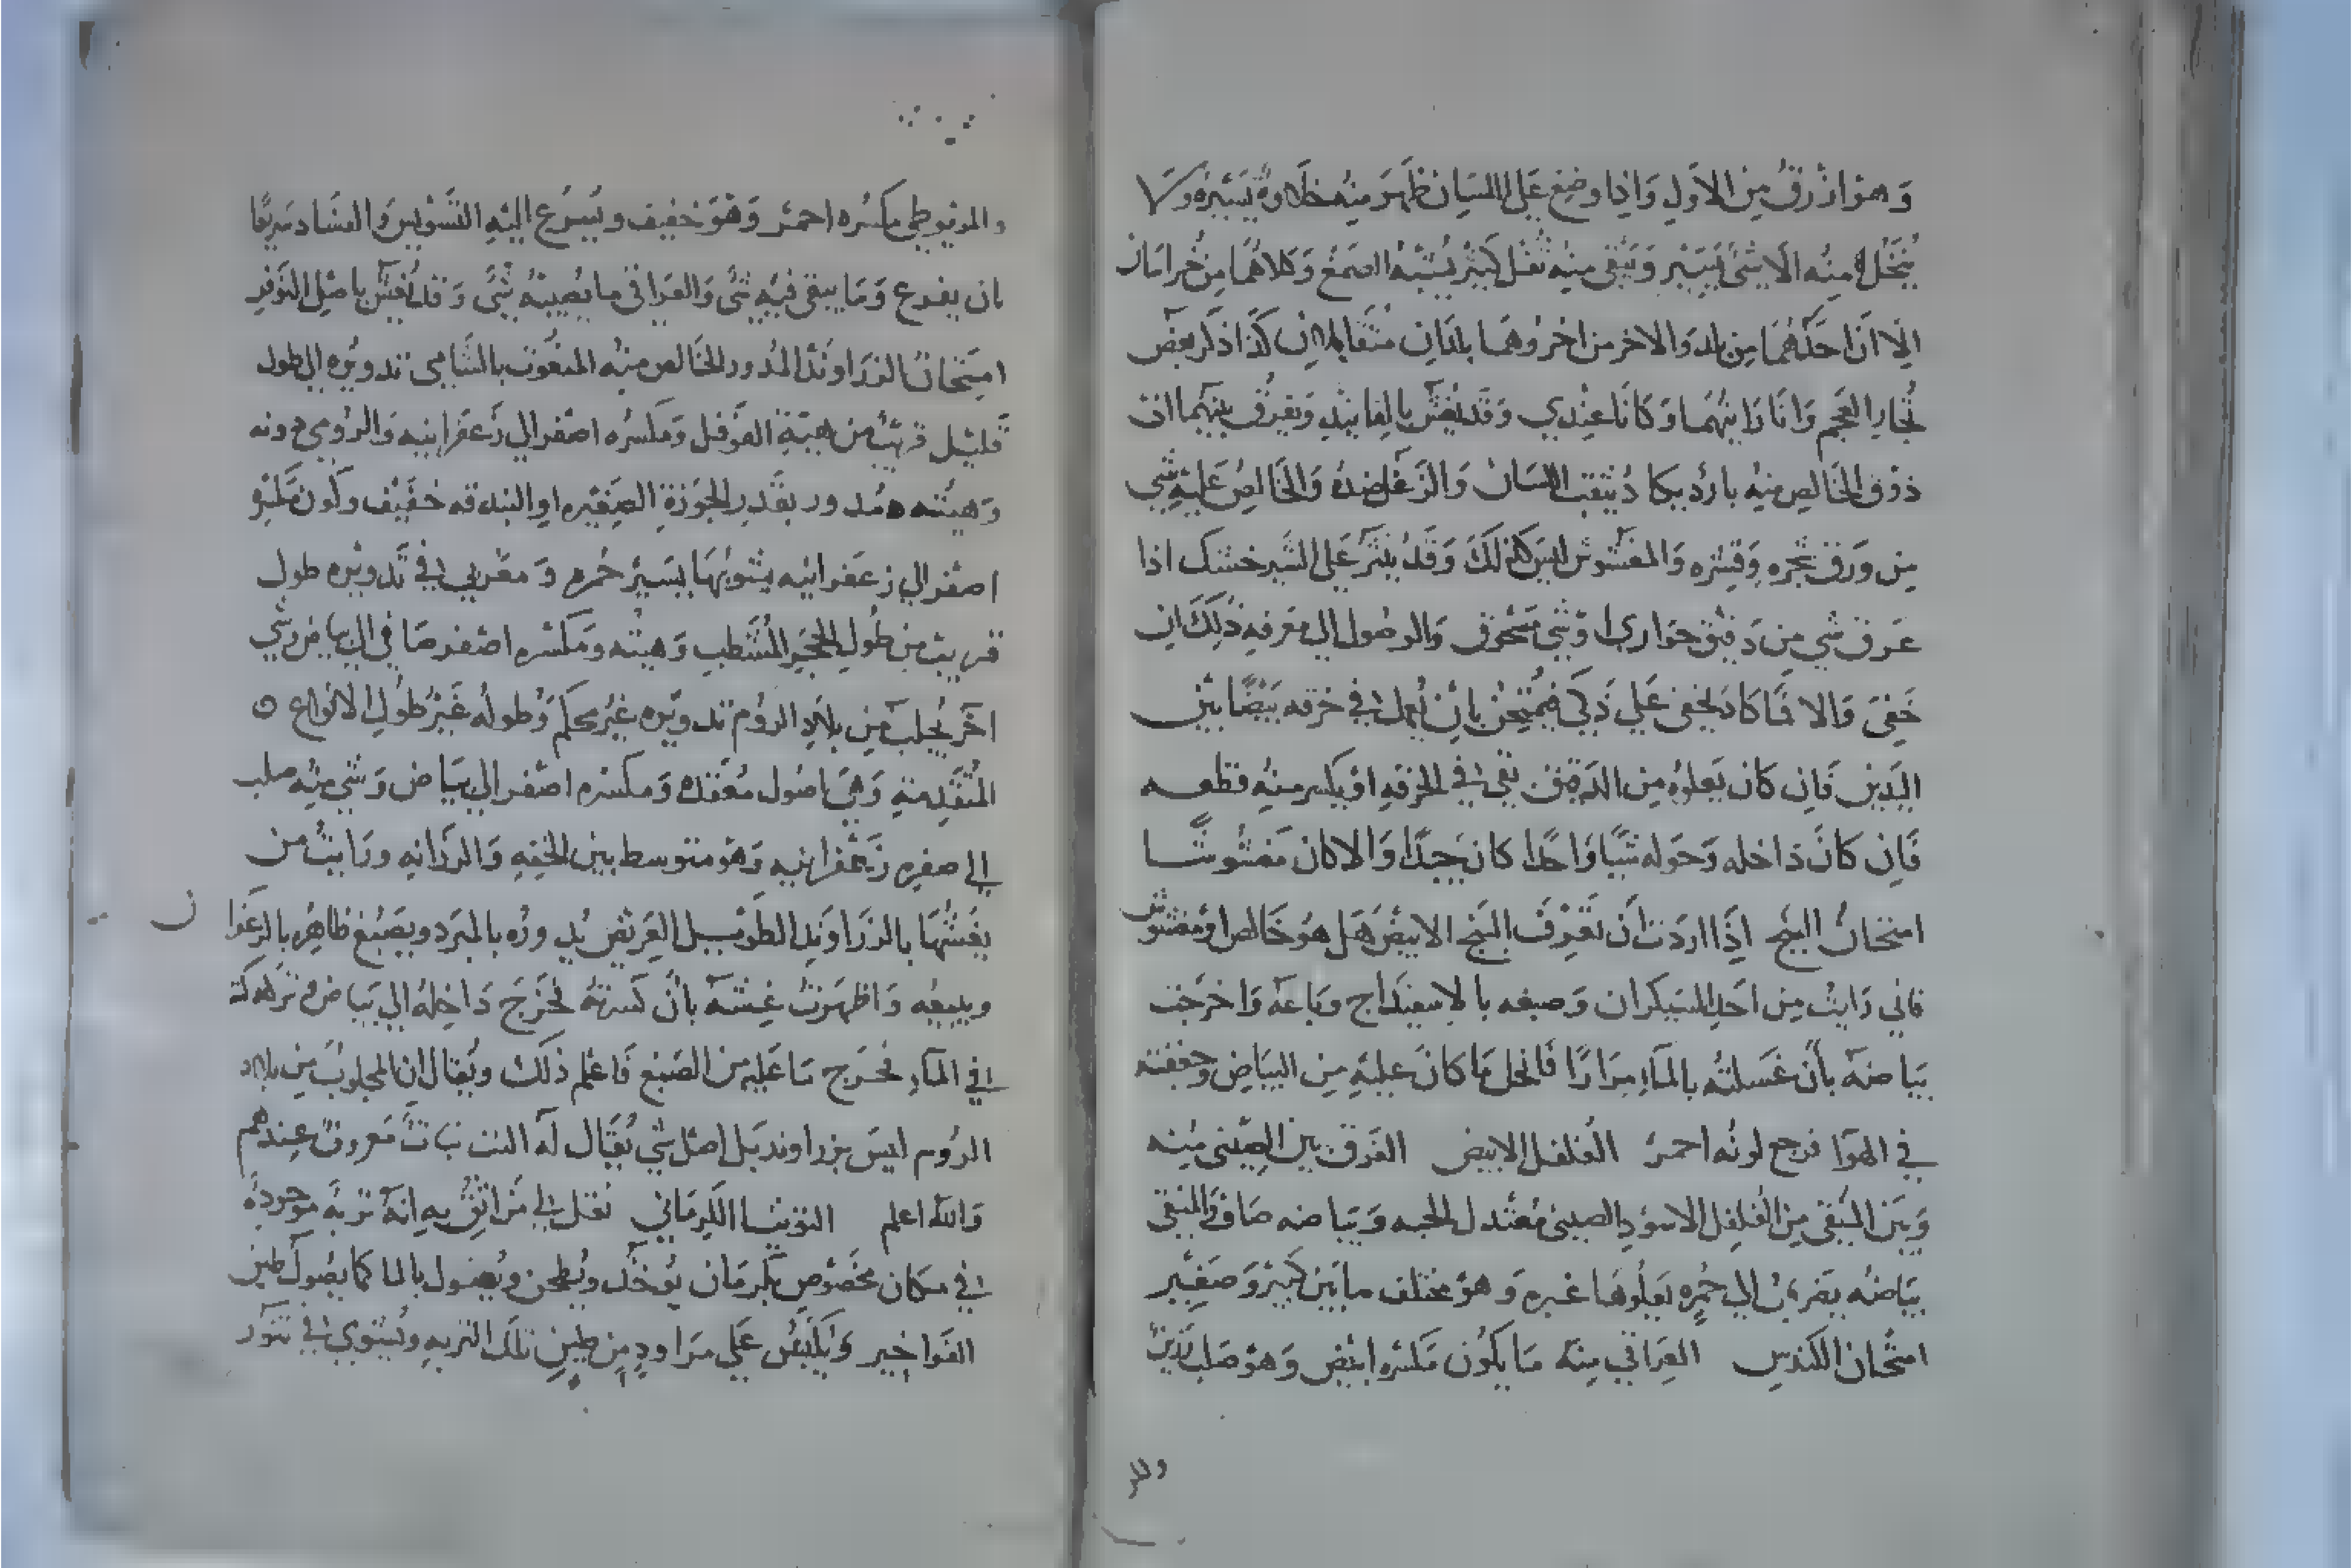 وهو ازرق من الاول واذا وضع على اللسان ظهر منه حلاوة يسيرة ولا
ينحل منه الا شئ يسير ويبقى منه ثفل كثير يشبه الصمغ وكلاهما من خراسان
الا ان احدهما من بلد والاخر من اخر وهما بلدان متقابلان كذا ذكر بعض
تجار العجم وانا رايتهما وكانا عندي وقد يغش بالفانيد ويفرق بينهما ان
ذوق الخالص منه بارد يكاد يثقب اللسان والزغل ضده والخالص عليه شي
من ورق شجره وقشره والمغشوش ليس كذلك وقد ينثر على الشيرخشك اذا
عرق شي من دقيق حوارى او شي مسحوق والوصول الى معرفة ذلك ان
خفي والا فما كاد يخفى على ذكي فيمتحن بان يعمل في خرقه بيضا بين
اليدين فان كان يعلوه من الدقيق بقي في الخرقه او يكسر منه قطعه
فان كان داخله وحوله شيا واحدا كان جيدا والا كان مغشوشا
امتحان البنج اذا اردت ان تعرف البنج الابيض هل هو خالص او مغشوش
فاني رايت من اخذ السيكران وصبغه بالاسفيداج وباعه واخرجت
بياضه بان غسلته بالماء مرارا فانحل ما كان عليه من البياض وجففته
في الهوا فرجع لونه احمر الفلفل الابيض الفرق بين الصيني منه
وبين المنقى من الفلفل الاسود الصيني معتدل الحبه وبياضه صاف والمنقى
بياضه يضرب الى حمره يعلوها غبره وهو مختلف ما بين كبير وصغير
امتحان الكندس العراقي منه ما يكون مكسره ابيض وهو صلب رزين
والم
والمريوطي مكسره احمر وهو خفيف ويسرع اليه التسويس والفساد سريعا
بان يفرع وما يبقى فيه شئ والعراقي ما يصيبه شئ وقد يغش باصل النوفر
امتحان الزراوند المدور الخالص منه المنعوت بالشامي تدويره الى طول
قليل قريب من هيئة الفوفل ومكسره اصفر الى زعفرانيه والرومي دونه
وهيئته مدور بقدر الجوزة الصغيره او البندقه خفيف ولون مكسره
اصفر الي زعفرانيه يشوبها يسير حمره ومغربي في تدويره طول
قريب من طول الحجر المشطب وهيئته ومكسره اصفر صافي الى بياض وشي
اخر يجلب من بلاد الروم تدويره غير محكم وطوله غير طول الانواع ه
المتقدمة وهي اصول معقده ومكسره اصفر الى بياض وشي منه صلب
الى صفره زعفرانيه وهو متوسط بين الخفه والرزانه ورايت من
يغشها بالزراوند الطويل العريض يدوره بالمبرد ويصبغ ظاهره بالزعفران
ويبيعه واظهرت غشه بان كسرته فخرج داخله الي بياض وتركته
في الماء فخرج ما عليه من الصبغ فاعلم ذلك ويقال ان المجلوب من بلاد
الروم ليس بزراوند بل اصل شي يقال له النت نبات معروف عندهم
والله اعلم التوتيا الكرماني نقل لي من اثق به انه تربة موجودة
في مكان مخصوص بكرمان يوخذ ويطحن ويصول بالما كما يصول طين
الفواخير ويلبس على مراود من طين تلك التربه ويشوي في تنور